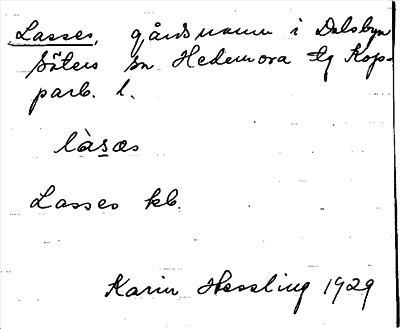 Lasses, gårdsnamn i Dalsbyn
Säters sn Hedemora tg Kop-
parb. l.
làsæs
Lasses kb.
Karin Hessling 1929